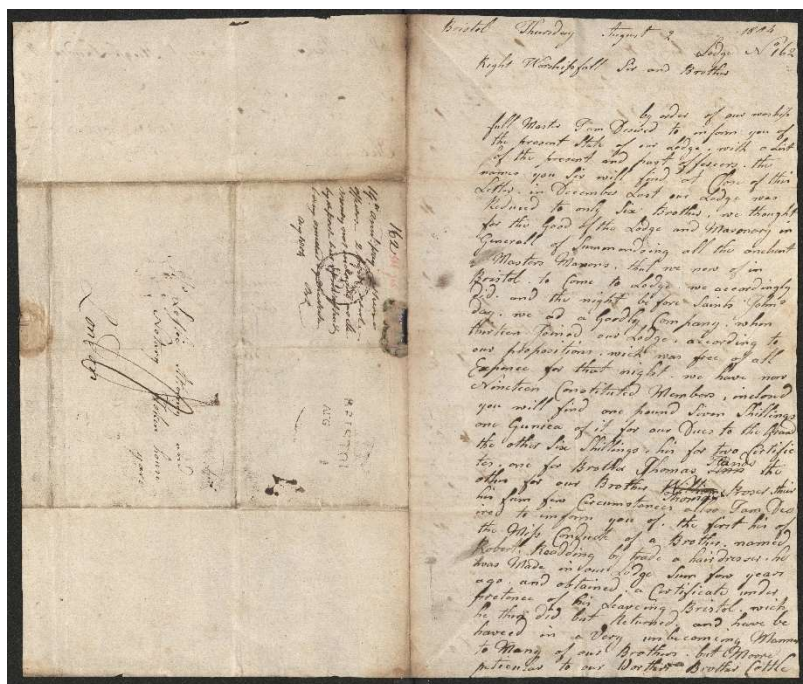 Bristol Thursday August 2 1804
Lodge No 162
Right Worshipfull Sir and Brother
by order of our worship
full Master I am Desired to inform you of
the present State of our Lodge, with a List
of the present and past officers, the
names you Sir will find at Close of this
Letter, in December Last our Lodge was
Reduced to only Six Brothers, we thought
for the Good of the Lodge and Masonery in
Generall of Summondsing all the anchant
Masters Masons, that we now of in
Bristol, to Come to Lodge, we accordingly
Did, and the night before Saint John's
day, we ad a Goodly Company, when
thirteen Joined our Lodge, according to
our propositions, wich was free of all
Expence for that night, we have now
Nineteen Constituted Members, inclosed
you will find one pound Seven Shillings
one Guinea of it for our Dues to the Grand
the other Six Shillings, his for two Certifica
tes, one for Brother Thomas the
other for our Brother Thomas Moses their
his sum few Circumstances allso I am Des
ired to inform you of, the first his of
the Miss Conduct of a Brother, named
Robert Readding by trade a hairdresser, he
was Made in our Lodge Sum few years
ago, and obtained a Certificate under
pretence of his Leaveing Bristol, wich
he did but Returned, and have be
haved in a Very unbecomeing Manner
to Many of our Brothers, but Moore
puticular to our Worthy Brother Cottle
162
BRISTOL
To Leslie
London